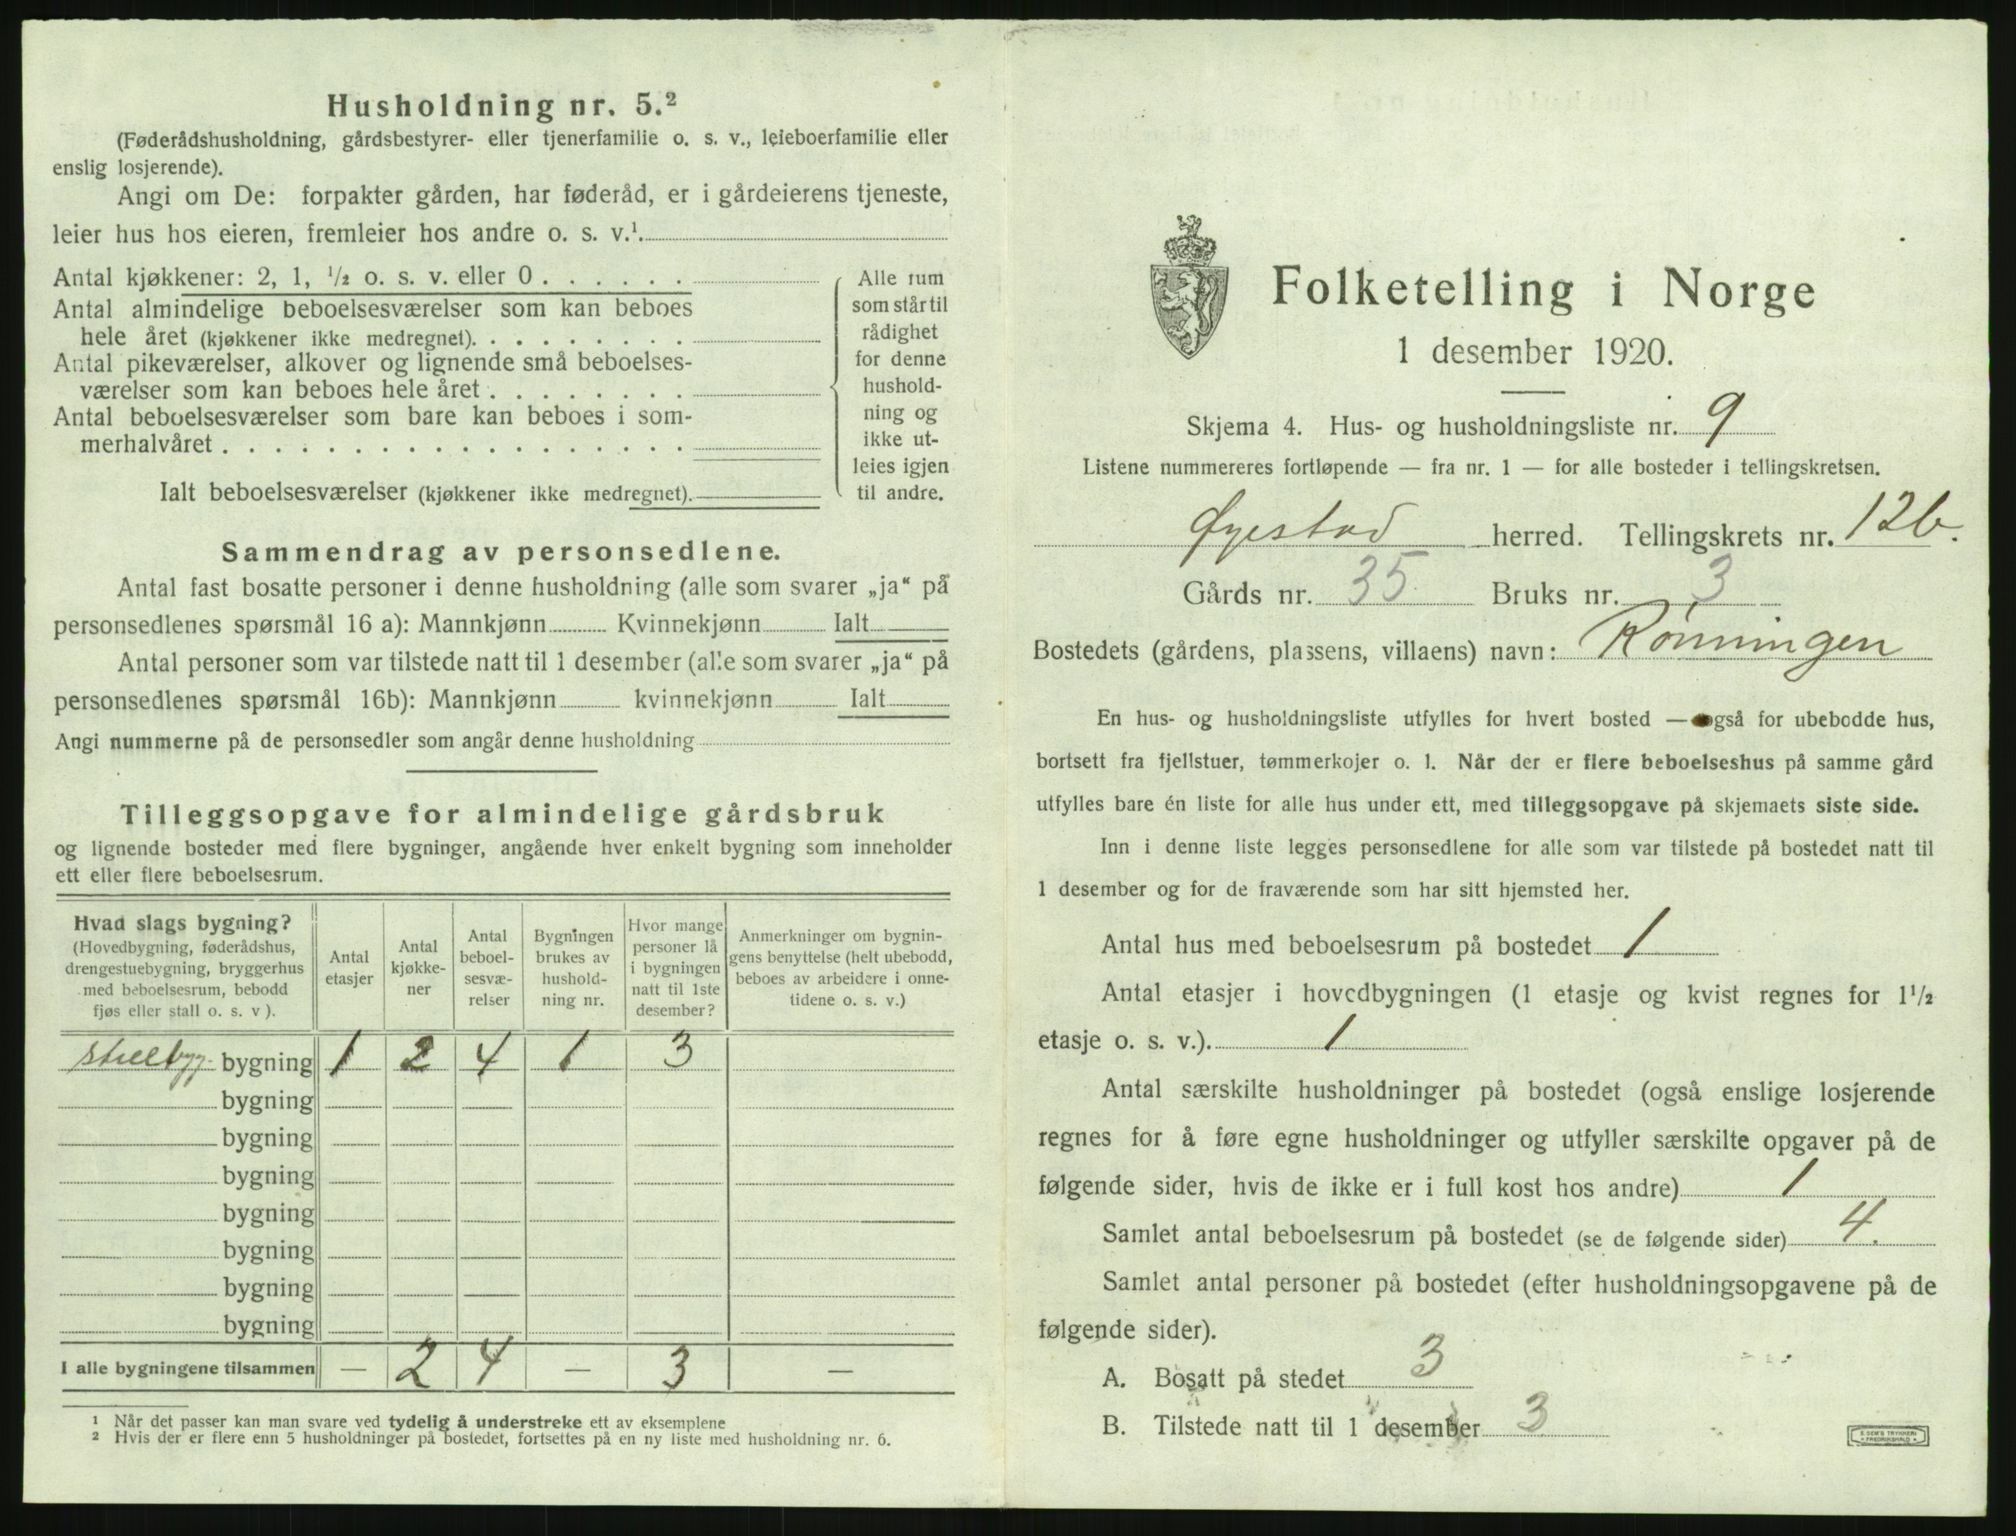 Husholdning nr. 5.²
(Føderådshusholdning, gårdsbestyrer- eller tjenerfamilie o. s. v., leieboerfamilie eller
enslig losjerende).
Angi om De: forpakter gården, har føderåd, er i gårdeierens tjeneste,
leier hus hos eieren, fremleier hos andre o. s. v.¹.
Antal kjøkkener: 2, 1, ¹/₂ o. s. v. eller 0 . . . . . .
Antal almindelige beboelsesværelser som kan beboes
hele året (kjøkkener ikke medregnet). . . . . . . . .
Antal pikeværelser, alkover og lignende små beboelses-
værelser som kan beboes hele året . . . . . . . .
Antal beboelsesværelser som bare kan beboes i som-
merhalvåret . . . . . . . . . . . . . . . . . .
Ialt beboelsesværelser (kjøkkener ikke medregnet).
Alle rum
som står til
rådighet
for denne
hushold-
ning og
ikke ut-
leies igjen
til andre.
Sammendrag av personsedlene.
Antal fast bosatte personer i denne husholdning (alle som svarer „ja“ på
personsedlenes spørsmål 16 a): Mannkjønn Kvinnekjønn Ialt
Antal personer som var tilstede natt til 1 desember (alle som svarer „ja“ på
personsedlenes spørsmål 16b): Mannkjønn kvinnekjønn Ialt
Angi nummerne på de personsedler som angår denne husholdning
Tilleggsopgave for almindelige gårdsbruk
og lignende bosteder med flere bygninger, angående hver enkelt bygning som inneholder
ett eller flere beboelsesrum.
Hvad slags bygning?
(Hovedbygning, føderådshus,
drengestuebygning, bryggerhus
med beboelsesrum, bebodd
fjøs eller stall o. s. v ).
Antal
etasjer
Antal
kjøkke-
ner
Antal
beboel-
sesvæ-
relser
Bygningen
brukes av
hushold-
ning nr.
Hvor mange
personer lå
i bygningen
natt til 1ste
desember?
Anmerkninger om bygnin-
gens benyttelse (helt ubebodd,
beboes av arbeidere i onne-
tidene o. s. v.)
bygning 1 2 4 1 3
bygning
bygning
bygning
bygning
bygning
bygning
bygning
I alle bygningene tilsammen — 2 4 — 3 —
¹ Når det passer kan man svare ved tydelig å understreke ett av eksemplene
² Hvis der er flere enn 5 husholdninger på bostedet, fortsettes på en ny liste med husholdning nr. 6.
Folketelling i Norge
1 desember 1920.
Skjema 4. Hus- og husholdningsliste nr. 9
Listene nummereres fortløpende — fra nr. 1 — for alle bosteder i tellingskretsen.
Øyestad herred. Tellingskrets nr. 12b.
Gårds nr. 35 Bruks nr. 3
Bostedets (gårdens, plassens, villaens) navn: Rønningen
En hus- og husholdningsliste utfylles for hvert bosted — også for ubebodde hus,
bortsett fra fjellstuer, tømmerkojer o. l. Når der er flere beboelseshus på samme gård
utfylles bare én liste for alle hus under ett, med tilleggsopgave på skjemaets siste side.
Inn i denne liste legges personsedlene for alle som var tilstede på bostedet natt til
1 desember og for de fraværende som har sitt hjemsted her.
Antal hus med beboelsesrum på bostedet 1
Antal etasjer i hovedbygningen (1 etasje og kvist regnes for 1¹/₂
etasje o. s. v.). 1
Antal særskilte husholdninger på bostedet (også enslige losjerende
regnes for å føre egne husholdninger og utfyller særskilte opgaver på de
følgende sider, hvis de ikke er i full kost hos andre) 1
Samlet antal beboelsesrum på bostedet (se de følgende sider) 4.
Samlet antal personer på bostedet (efter husholdningsopgavene på de
følgende sider).
A. Bosatt på stedet 3
B. Tilstede natt til 1 desember 3
E. SEM'S TRYKKERI
FREDRIKSHALD